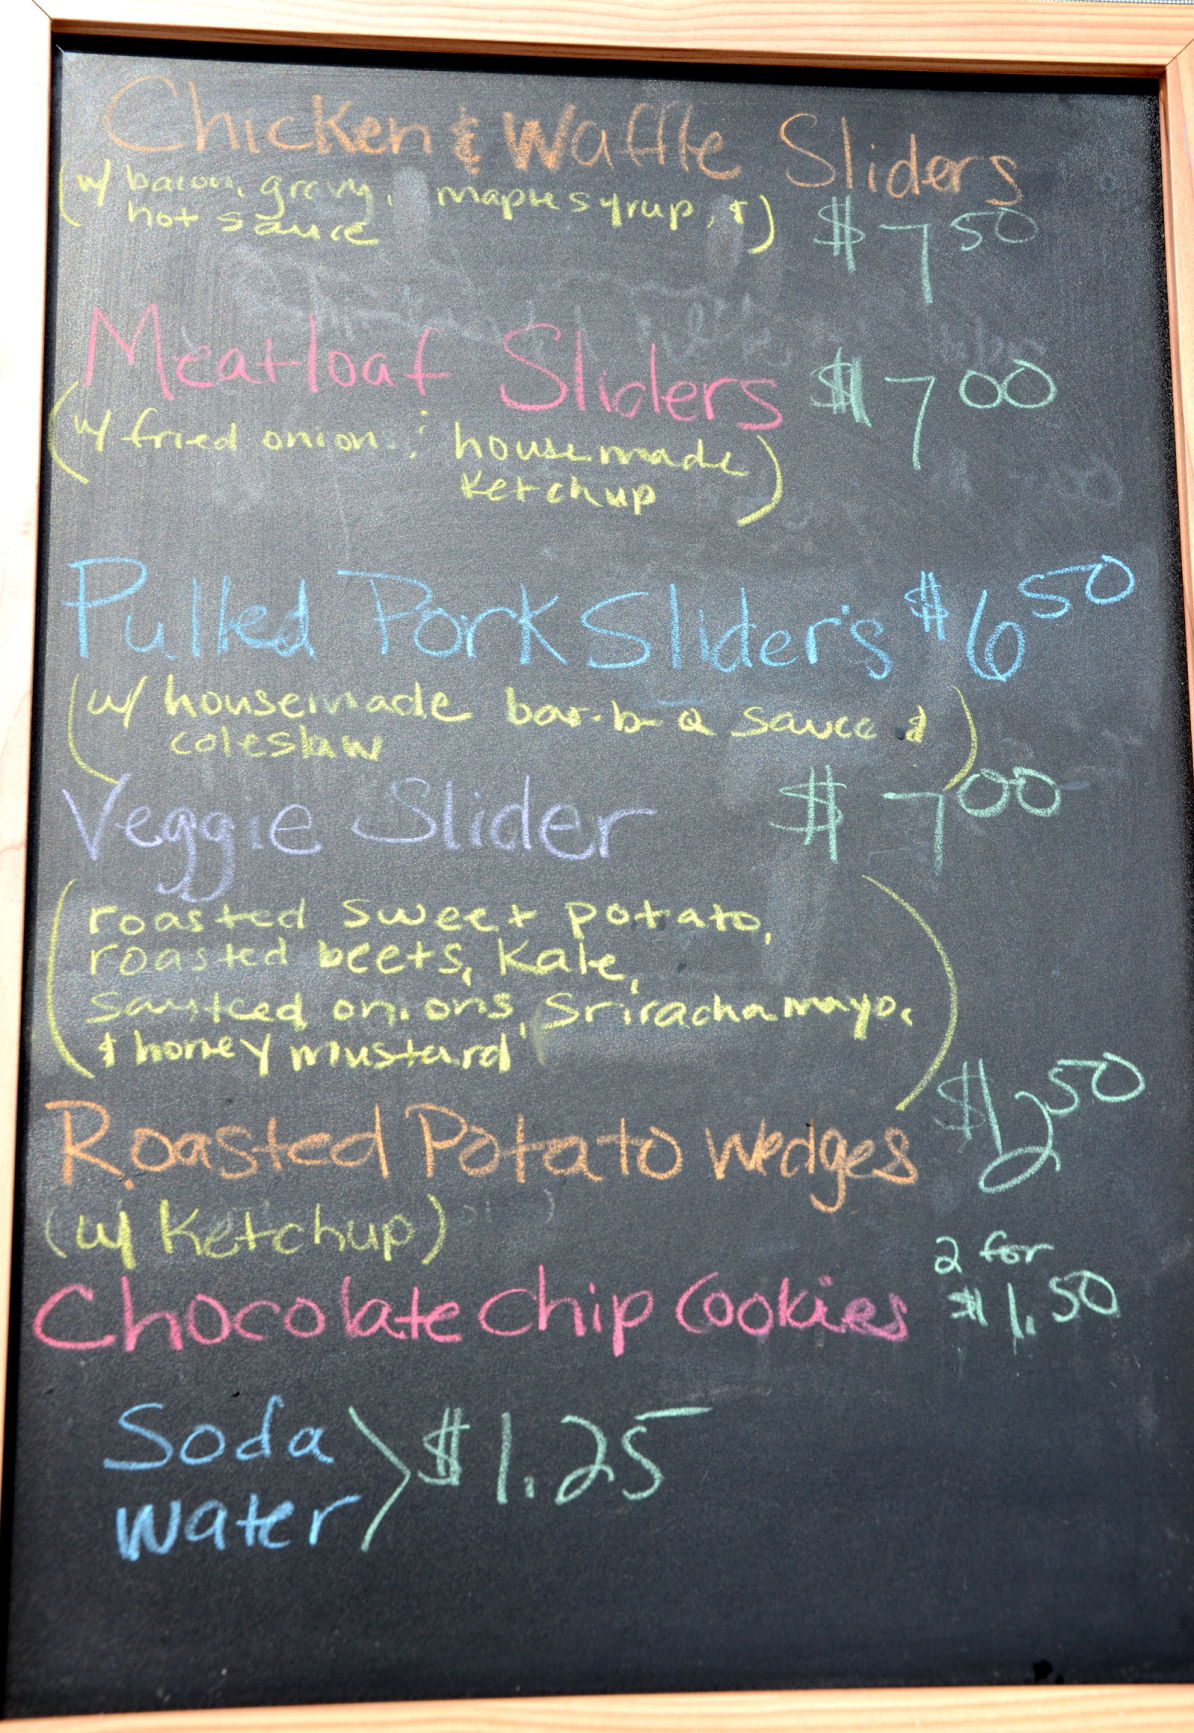 Chicken & Waffle Sliders
(w/ bacon, gravy, maple syrup, &) $7 50
hot sauce
Meatloaf Sliders $7 00
(w/ fried onions; housemade
ketchup)
Pulled Pork Sliders $6 50
(w/ housemade bar-b-q sauce &
coleslaw)
Veggie Slider $7 00
(roasted sweet potato,
roasted beets, Kale,
sauteed onions, Sriracha mayo,
& honey mustard)
Roasted Potato Wedges $2 50
(w/ Ketchup)
Chocolate Chip Cookies 2 for $1.50
Soda
Water > $1.25